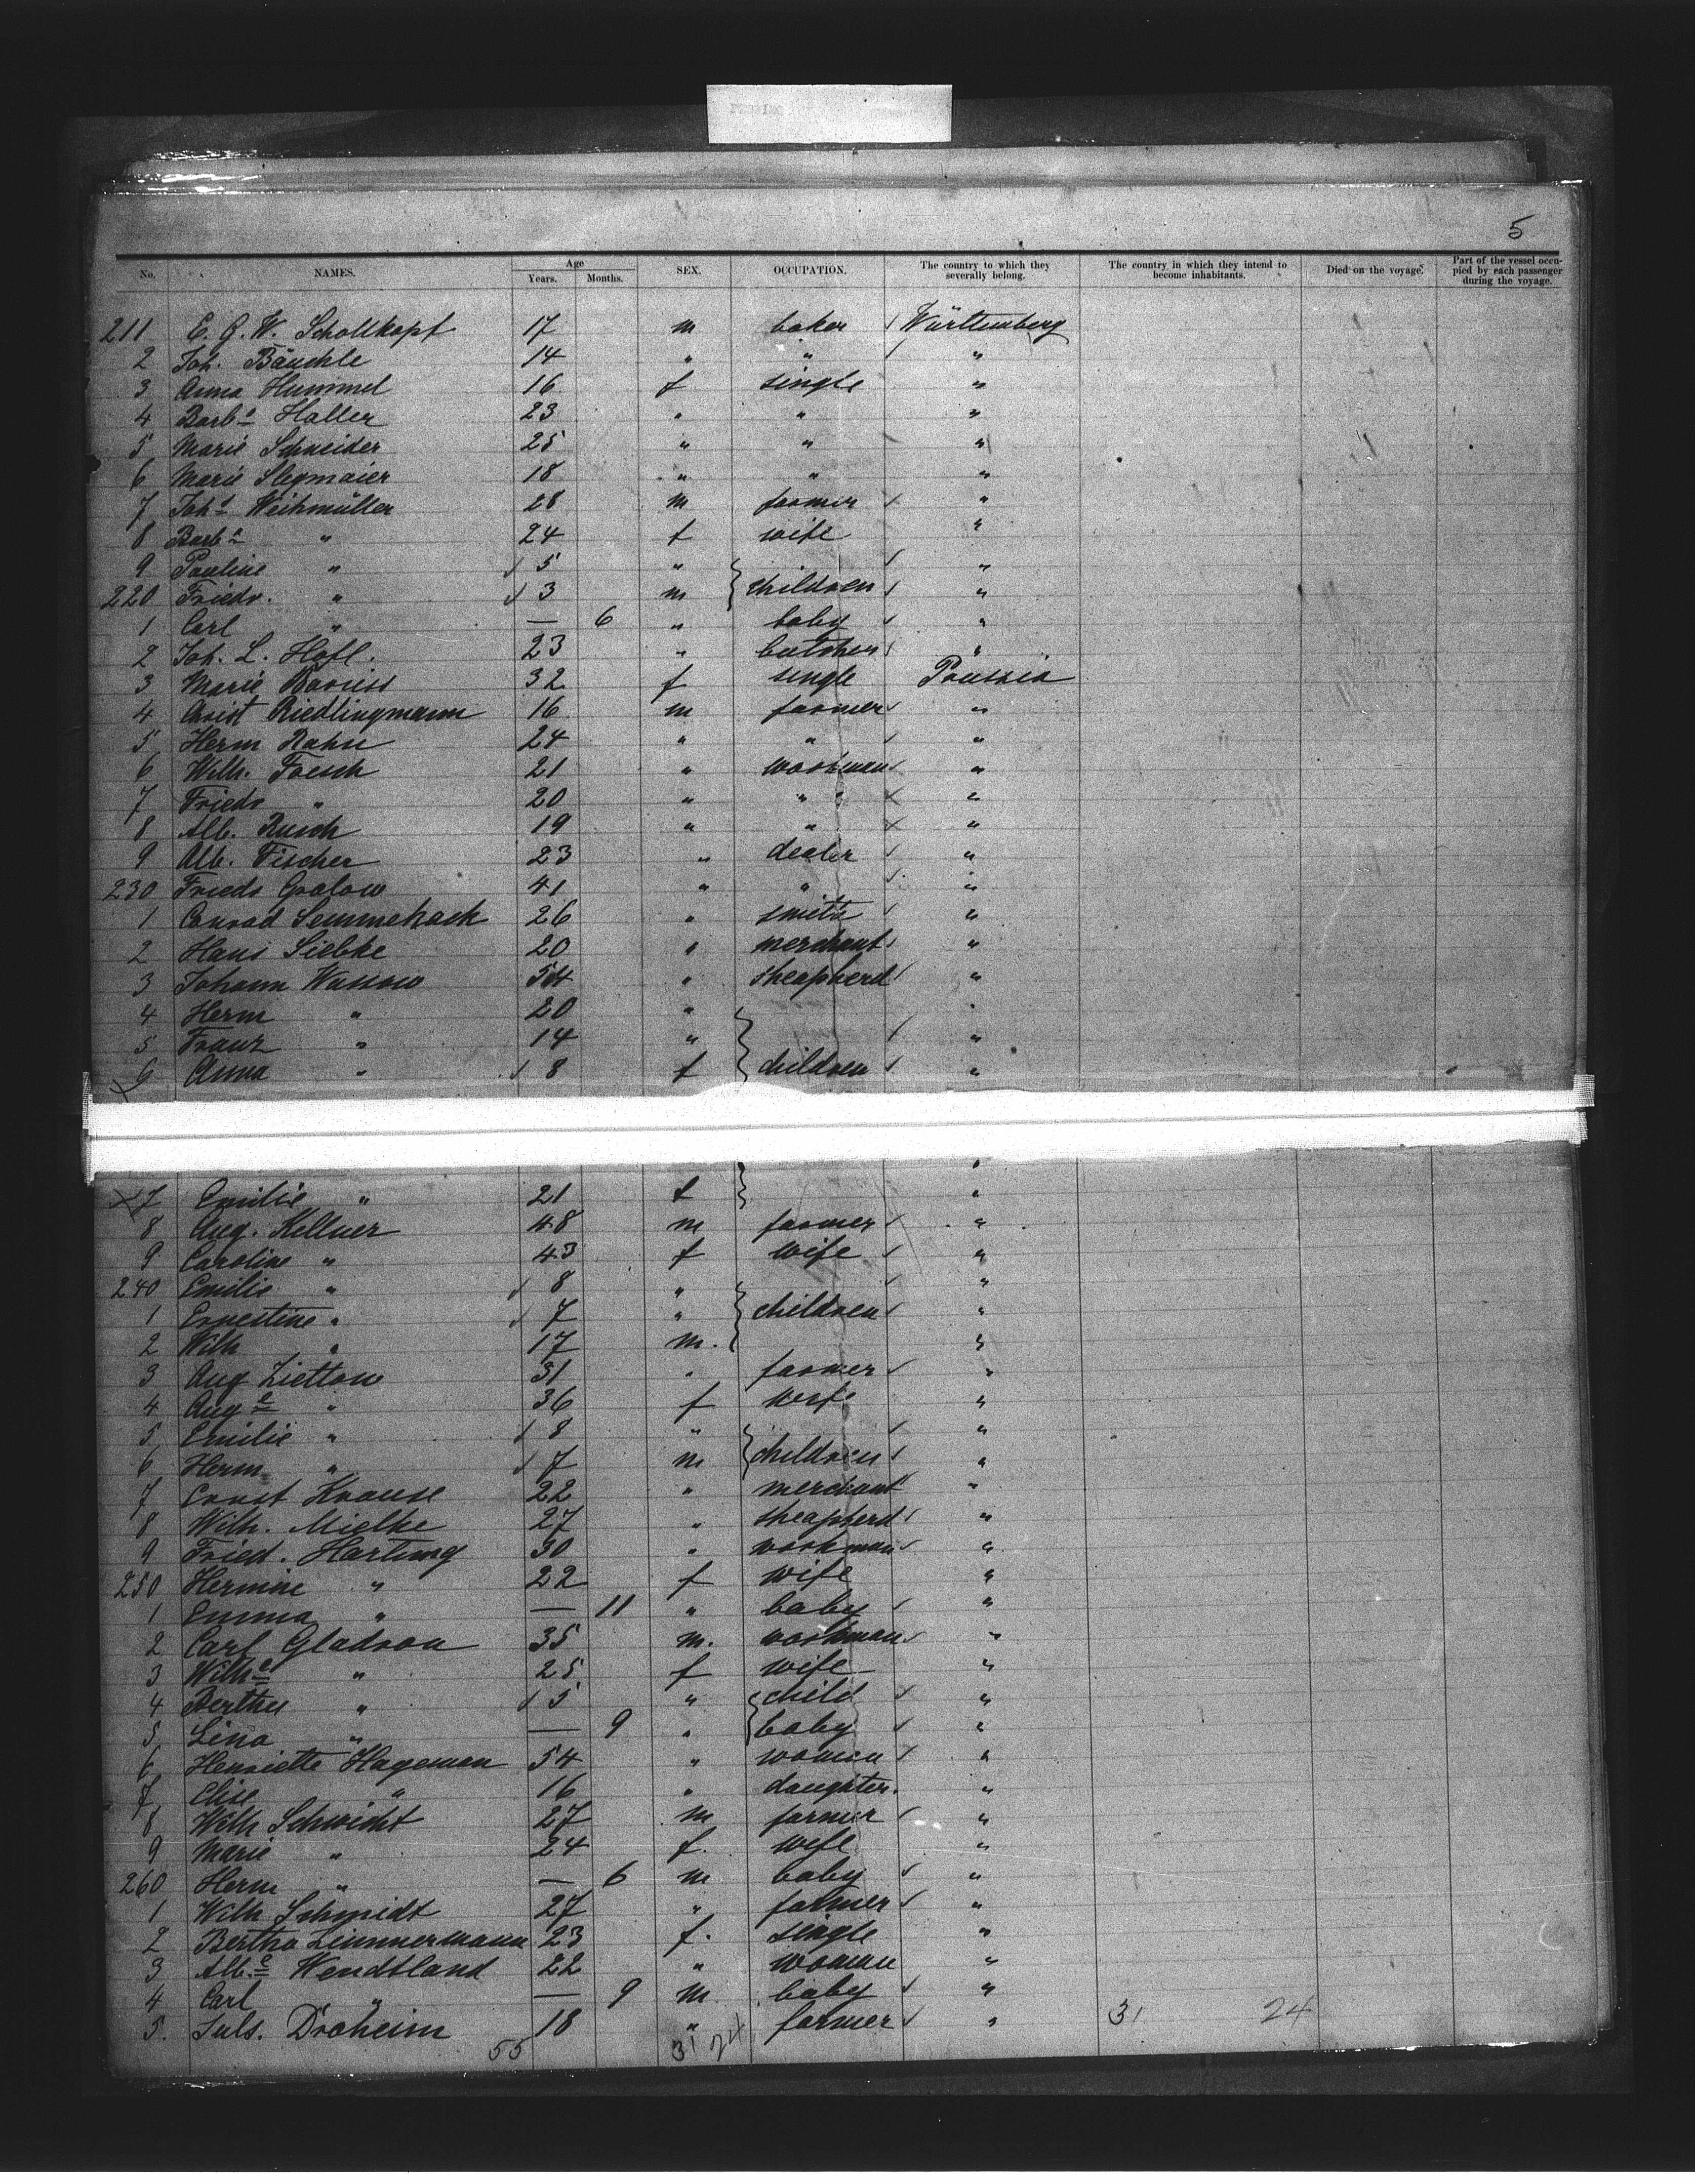 5
No. NAMES. Age Years. Months. SEX. OCCUPATION. The country to which they severally belong. The country in which they intend to become inhabitants. Died on the voyage. Part of the vessel occupied by each passenger during the voyage.
211 E. G. W. Schollkopf 17 m baker Württemberg
2 Joh. Bäuchle 14 " " "
3 Anna Hummel 16 f single "
4 Barba Haller 23 " " "
5 Marie Schneider 25 " " "
6 Marie Slegmaier 18 " " "
7 Joh. Weihmüller 28 m farmer "
8 Barba " 24 f wife "
9 Pauline " 5 " "
220 Friedr. " 3 m children "
1 Carl " — 6 " baby "
2 Joh. L. Hofl. 23 " butcher "
3 Marie 32 f single Prussia
4 Christ Riedlingmann 16 m farmer "
5 Herm Rahn 24 " " "
6 Wilh. Foesch 21 " workman "
7 Friedr " 20 " " "
8 Alb. Rusch 19 " " "
9 Alb. Fischer 23 " dealer "
230 Friedr Gralow 41 " " "
1 Conrad Semmehack 26 " smith "
2 Hans Siebke 20 " merchant "
3 Johann Wussow 54 " sheapherd "
4 Herm " 20 " "
5 Franz " 14 " "
6 Anna " 8 f children "
7 Emilie " 21 f "
8 Aug. Kellner 48 m farmer "
9 Caroline " 43 f wife "
240 Emilie " 8 " "
1 Ernestine " 7 " children "
2 Wilh " 17 m. "
3 Aug Zietlow 31 " farmer "
4 Auge " 36 f wife "
5 Emilie " 8 " "
6 Herm " 7 m children "
7 Ernst Krause 22 " merchant "
8 Wilh. Mielke 27 " sheapherd "
9 Fried. Hartung 30 " workman "
250 Hermine " 22 f wife "
1 Emma " — 11 " baby "
2 Carl Gladrou 35 m. workman "
3 Wilhe " 25 f wife "
4 Bertha " 5 " child "
5 Lina " — 9 " baby "
6 Henriette Hageman 54 " woman "
7 Elise " 16 " daughter "
8 Wilh Schwicht 27 m farmer "
9 Marie " 24 f. wife "
260 Herm " — 6 m baby "
1 Wilh Schmidt 27 " farmer "
2 Bertha Zimmermann 23 f. single "
3 Albe Wendtland 22 " woman "
4 Carl " — 9 m baby "
5. Juls. Draheim 18 " farmer " 31 24
55 31 24